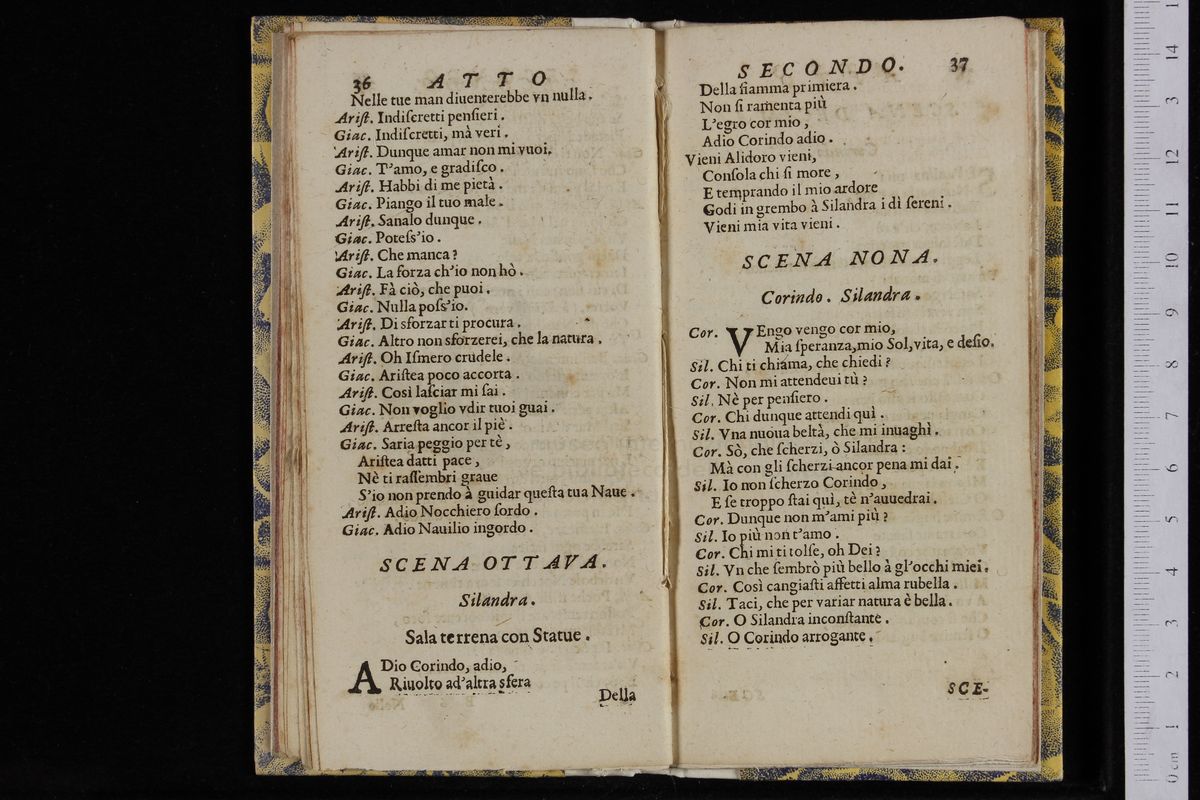 36 ATTO
Nelle tue man diuenterebbe vn nulla.
Ariſt. Indiſcretti penſieri.
Giac. Indiſcretti, mà veri.
Ariſt. Dunque amar non mi vuoi.
Giac. T'amo, e gradiſco.
Ariſt. Habbi di me pietà.
Giac. Piango il tuo male.
Ariſt. Sanalo dunque.
Giac. Poteſs'io.
Ariſt. Che manca?
Giac. La forza ch'io non hò.
Ariſt. Fà ciò, che puoi.
Giac. Nulla poſs'io.
Ariſt. Di sforzarti procura.
Giac. Altro non sforzerei, che la natura.
Ariſt. Oh Iſmero crudele.
Giac. Ariſtea poco accorta.
Ariſt. Così laſciar mi ſai.
Giac. Non voglio vdir tuoi guai.
Ariſt. Arreſta ancor il piè.
Giac. Saria peggio per tè,
Ariſtea datti pace,
Nè ti raſſembri graue
S'io non prendo à guidar queſta tua Naue.
Ariſt. Adio Nocchiero ſordo.
Giac. Adio Nauilio ingordo.
SCENA OTTAVA.
Silandra.
Sala terrena con Statue.
ADio Corindo, adio,
Riuolto ad'altra sfera
Della
SECONDO. 37
Della fiamma primiera.
Non ſi ramenta più
L'egro cor mio,
Adio Corindo adio.
Vieni Alidoro vieni,
Conſola chi ſi more,
E temprando il mio ardore
Godi in grembo à Silandra i dì ſereni.
Vieni mia vita vieni.
SCENA NONA.
Corindo. Silandra.
Cor. VEngo vengo cor mio,
Mia ſperanza, mio Sol, vita, e deſio.
Sil. Chi ti chiama, che chiedi?
Cor. Non mi attendeui tù?
Sil. Nè per penſiero.
Cor. Chi dunque attendi quì.
Sil. Vna nuoua beltà, che mi inuaghì.
Cor. Sò, che ſcherzi, ò Silandra:
Mà con gli ſcherzi ancor pena mi dai.
Sil. Io non ſcherzo Corindo,
E ſe troppo ſtai quì, tè n'auuedrai.
Cor. Dunque non m'ami più?
Sil. Io più non t'amo.
Cor. Chi mi ti tolſe, oh Dei?
Sil. Vn che ſembrò più bello à gl'occhi miei.
Cor. Così cangiaſti affetti alma rubella.
Sil. Taci, che per variar natura è bella.
Cor. O Silandra inconſtante.
Sil. O Corindo arrogante.
SCE-